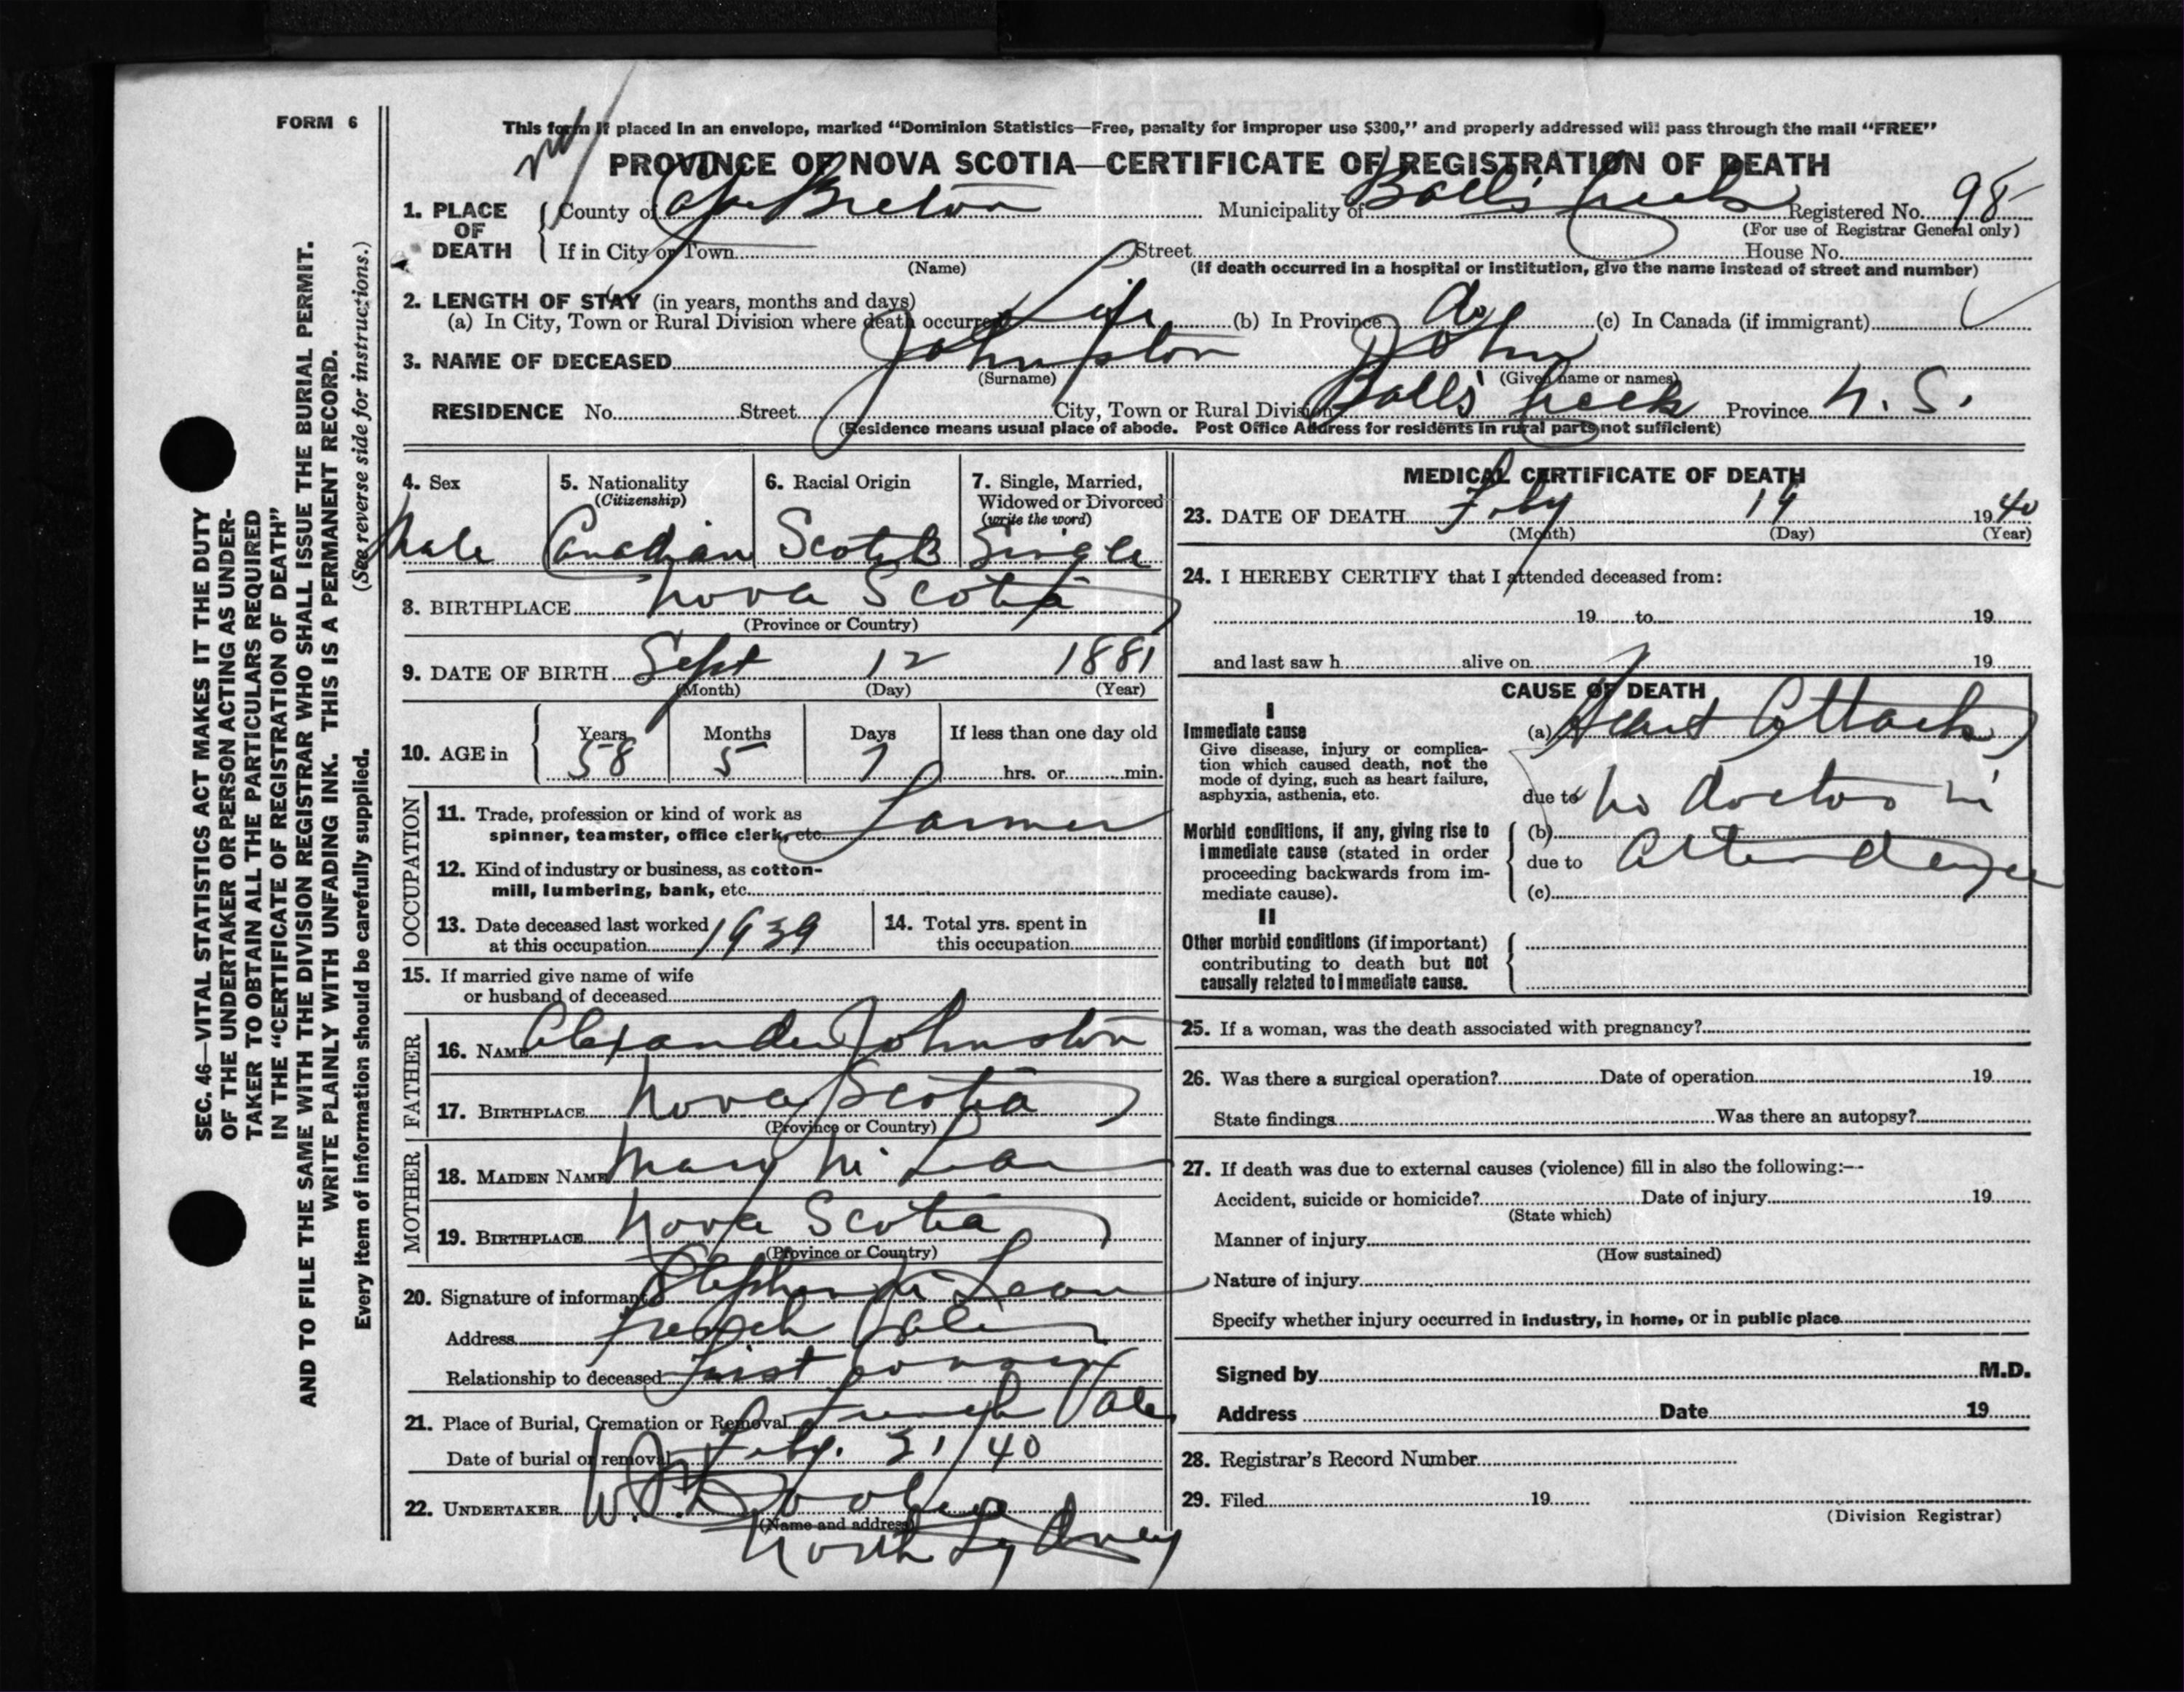 FORM 6
This form if placed in an envelope, marked “Dominion Statistics—Free, penalty for improper use $300,” and properly addressed will pass through the mail “FREE”
PROVINCE OF NOVA SCOTIA—CERTIFICATE OF REGISTRATION OF DEATH
1. PLACE OF DEATH
County of Cape Breton Municipality of Balls Creek Registered No. 98
(For use of Registrar General only)
If in City or Town Street House No.
(Name) (If death occurred in a hospital or institution, give the name instead of street and number)
2. LENGTH OF STAY (in years, months and days)
(a) In City, Town or Rural Division where death occurred Life (b) In Province do (c) In Canada (if immigrant)
3. NAME OF DECEASED Johnston John
(Surname) (Given name or names)
RESIDENCE No. Street City, Town or Rural Division Balls Creek Province N. S.
(Residence means usual place of abode. Post Office Address for residents in rural parts not sufficient)
4. Sex
Male
5. Nationality
(Citizenship)
Canadian
6. Racial Origin
Scotch
7. Single, Married,
Widowed or Divorced
(write the word)
Single
8. BIRTHPLACE Nova Scotia
(Province or Country)
9. DATE OF BIRTH Sept 12 1881
(Month) (Day) (Year)
10. AGE in
Years Months Days If less than one day old
58 5 7 hrs. or min.
OCCUPATION
11. Trade, profession or kind of work as
spinner, teamster, office clerk, etc. Farmer
12. Kind of industry or business, as cotton-
mill, lumbering, bank, etc.
13. Date deceased last worked
at this occupation 1939
14. Total yrs. spent in
this occupation
15. If married give name of wife
or husband of deceased
FATHER
16. NAME Alexander Johnston
17. BIRTHPLACE Nova Scotia
(Province or Country)
MOTHER
18. MAIDEN NAME Mary Mc Lean
19. BIRTHPLACE Nova Scotia
(Province or Country)
20. Signature of informant Stephen Mc Lean
Address French Vale
Relationship to deceased First cousin
21. Place of Burial, Cremation or Removal French Vale
Date of burial or removal Feby. 21/40
22. UNDERTAKER W. J. Dooley
(Name and address)
North Sydney
MEDICAL CERTIFICATE OF DEATH
23. DATE OF DEATH Feby 19 1940
(Month) (Day) (Year)
24. I HEREBY CERTIFY that I attended deceased from:
19 to 19
and last saw h alive on 19
CAUSE OF DEATH
I
Immediate cause
Give disease, injury or complica-
tion which caused death, not the
mode of dying, such as heart failure,
asphyxia, asthenia, etc.
(a) Heart Attack
due to No doctor in
Morbid conditions, if any, giving rise to
immediate cause (stated in order
proceeding backwards from im-
mediate cause).
(b)
due to Attendance
(c)
II
Other morbid conditions (if important)
contributing to death but not
causally related to immediate cause.
25. If a woman, was the death associated with pregnancy?
26. Was there a surgical operation? Date of operation 19
State findings Was there an autopsy?
27. If death was due to external causes (violence) fill in also the following:--
Accident, suicide or homicide? Date of injury 19
(State which)
Manner of injury
(How sustained)
Nature of injury
Specify whether injury occurred in industry, in home, or in public place
Signed by M.D.
Address Date 19
28. Registrar's Record Number
29. Filed 19
(Division Registrar)
SEC. 46—VITAL STATISTICS ACT MAKES IT THE DUTY
OF THE UNDERTAKER OR PERSON ACTING AS UNDER-
TAKER TO OBTAIN ALL THE PARTICULARS REQUIRED
IN THE “CERTIFICATE OF REGISTRATION OF DEATH”
AND TO FILE THE SAME WITH THE DIVISION REGISTRAR WHO SHALL ISSUE THE BURIAL PERMIT.
WRITE PLAINLY WITH UNFADING INK. THIS IS A PERMANENT RECORD.
Every item of information should be carefully supplied. (See reverse side for instructions.)